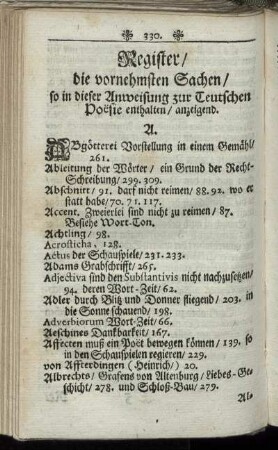 330.
Register/
die vornehmsten Sachen/
so in dieser Anweisung zur Teutschen
Poësie enthalten/ anzeigend.
A.
ABgötterei Vorstellung in einem Gemähl/
261.
Ableitung der Wörter/ ein Grund der Recht-
Schreibung/ 299. 309.
Abschnitt/ 91. darf nicht reimen/ 88. 92. wo er
statt habe/ 70. 71. 117.
Accent. Zweierlei sind nicht zu reimen/ 87.
Besihe Wort-Ton.
Achtling/ 98.
Acrosticha, 128.
Actus der Schauspiele/ 231. 233.
Adams Grabschrift/ 265.
Adjectiva sind den Substantivis nicht nachzusetzen/
94. deren Wort-Zeit/ 62.
Adler durch Blitz und Donner fliegend/ 203. in
die Sonne schauend/ 198.
Adverbiorum Wort-Zeit/ 66.
Aeschines Dankbarkeit/ 167.
Affecten muß ein Poët bewegen können/ 139. so
in den Schauspielen regieren/ 229.
von Affterdingen (Heinrich) 20.
Albrechts/ Grafens von Altenburg/ Liebes-Ge-
schicht/ 278. und Schloß-Bau/ 279.
Al-